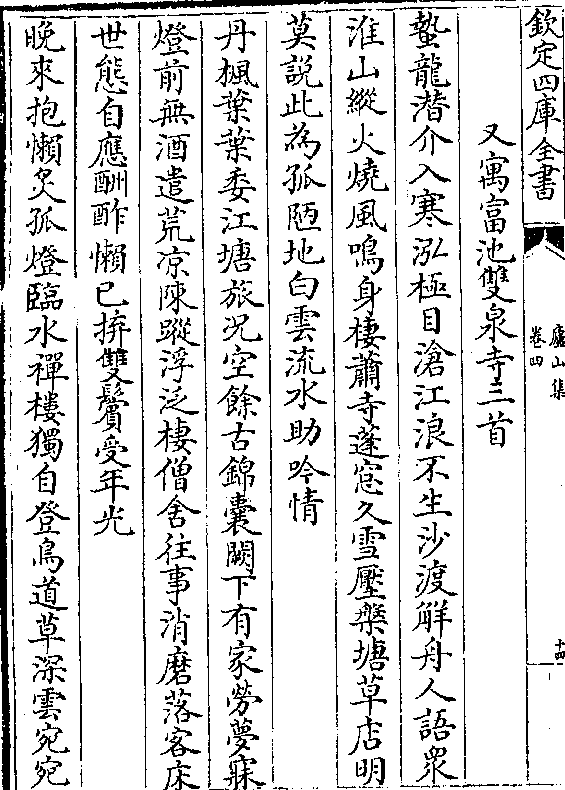 欽定四庫全書
廬山集
卷四
十四
又寓富池雙泉寺三首
蟄龍潛介入寒泓極目滄江浪不生沙渡解舟人語衆
淮山縱火燒風鳴身棲蕭寺蓬窓久雪壓槃塘草店明
莫説此為孤陋地白雲流水助吟情
丹楓葉葉委江塘旅况空餘古錦囊闕下有家勞夢寐
燈前無酒遣荒凉陳蹤浮泛棲僧舍往事消磨落客床
世態自應酬酢懶已拚雙鬢受年光
晚來抱懶炙孤燈臨水禪樓獨自登鳥道草深雲宛宛